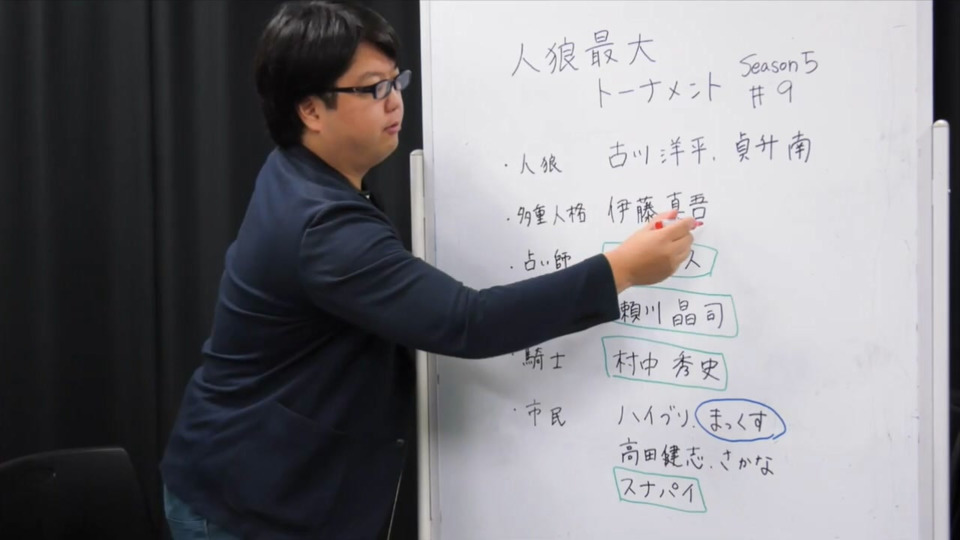 人狼最大
トーナメント Season5 #9
・人狼 古川洋平、貞升南
・多重人格 伊藤真吾
・占い師 人
瀬川晶司
・騎士 村中秀史
・市民 ハイブリ、まっくす
高田健志、さかな
スナパイ